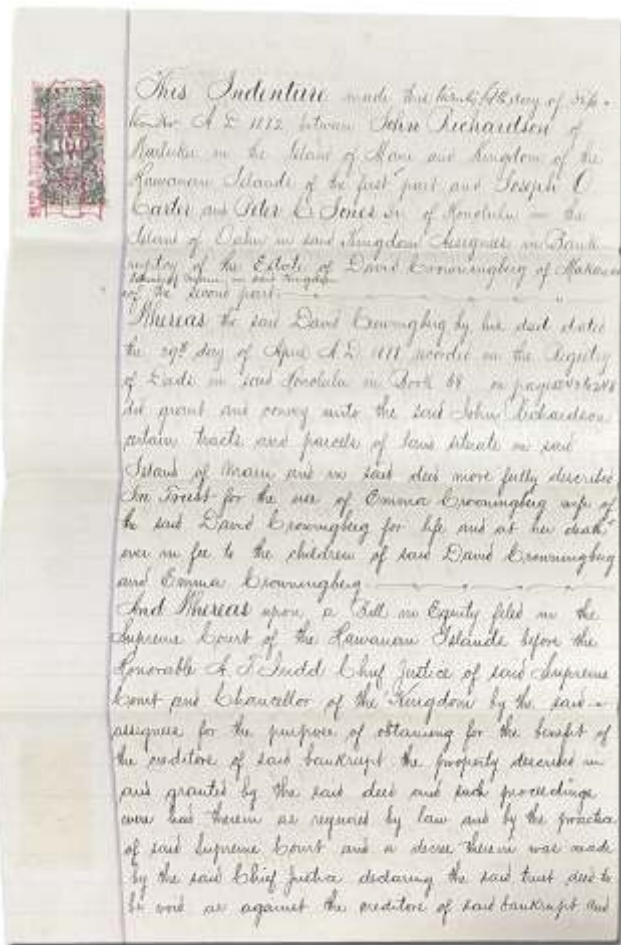 STAMP DU
100
This Indenture made this twenty fifth day of Sep-
tember A.D. 1882 between John Richardson of
Wailuku in the Island of Maui and Kingdom of the
Hawaiian Islands of the first part and Joseph O
Carter and Peter C Jones Jr. of Honolulu in the
Island of Oahu in said Kingdom Assignees in Bank-
ruptcy of the Estate of David Crowningberg of Makawao
Island of Maui in said Kingdom
of the second part.
Whereas the said David Crowningberg by his deed dated
the 29th day of April A.D. 1881 recorded in the Registry
of Deeds in said Honolulu in Book 68 on pages
did grant and convey unto the said John Richardson
certain tracts and parcels of land situate in said
Island of Maui and in said deed more fully described
In Trust for the use of Emma Crowningberg wife of
the said David Crowningberg for life and at her death
over in fee to the children of said David Crowningberg
and Emma Crowningberg
And Whereas upon a Bill in Equity filed in the
Supreme Court of the Hawaiian Islands before the
Honorable A F Judd Chief Justice of said Supreme
Court and Chancellor of the Kingdom by the said
assignees for the purpose of obtaining for the benefit of
the creditors of said bankrupt the property described in
and granted by the said deed and such proceedings
were had therein as required by law and by the practice
of said Supreme Court and a decree therein was made
by the said Chief Justice declaring the said trust deed to
be void as against the creditors of said bankrupt and